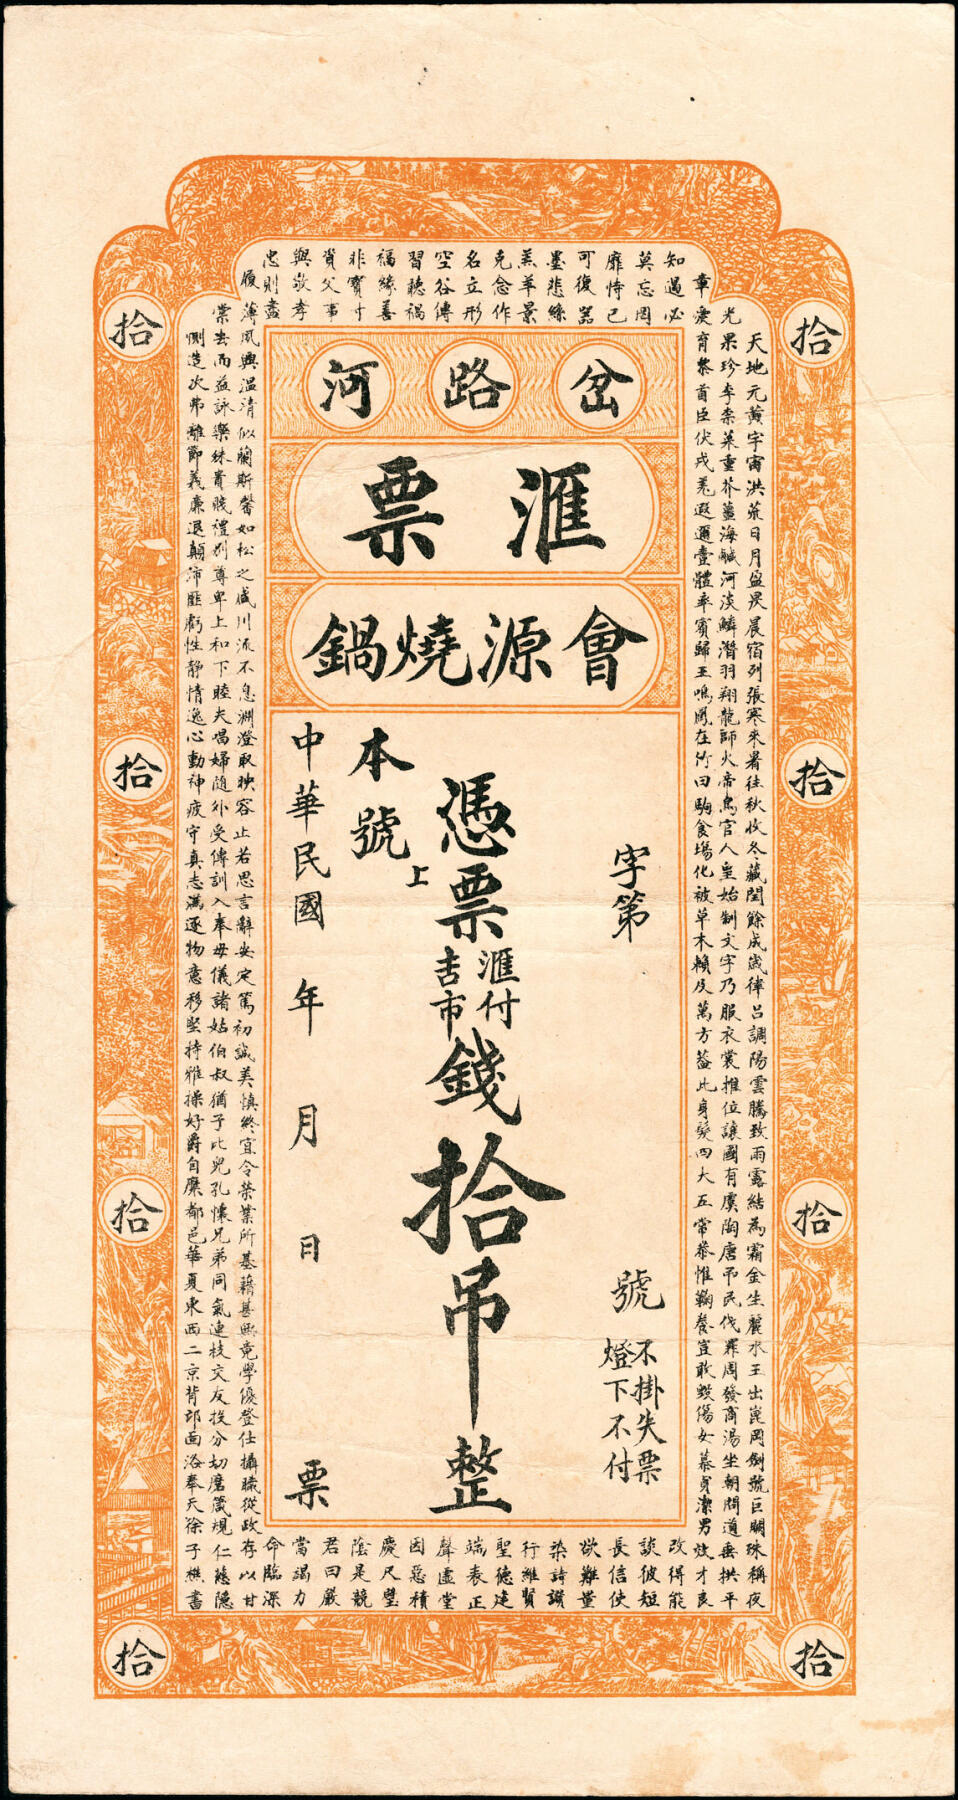 岔路河
滙票
會源燒鍋
字第 號
不掛失票
燈下不付
憑票滙付吉市錢拾吊整
本號上
中華民國 年 月 日 票
拾
拾
拾
拾
拾
拾
拾
拾
天地元黄宇宙洪荒日月盈昃晨宿列張寒来暑往秋收冬藏閏餘成歲律吕調陽雲騰致雨露結為霜金生麗水玉出崑岡劍號巨闕珠稱夜
光果珍李柰菜重芥薑海鹹河淡鱗潛羽翔龍師火帝鳥官人皇始制文字乃服衣裳推位讓國有虞陶唐吊民伐罪周發商湯坐朝問道垂拱平
章愛育黎首臣伏戎羌遐邇壹體率賓歸王鳴鳳在竹白駒食場化被草木賴及萬方蓋此身髮四大五常恭惟鞠養豈敢毀傷女慕貞潔男效才良
知過必
改得能
莫忘罔
談彼短
靡恃己
長信使
可復器
欲難量
墨悲絲
染詩讚
羔羊景
行維賢
克念作
聖德建
名立形
端表正
空谷傳
聲虛堂
習聽禍
因惡積
福緣善
慶尺璧
非寶寸
陰是競
資父事
君曰嚴
與敬孝
當竭力
忠則盡
命臨深
履薄夙興温清似蘭斯馨如松之盛川流不息淵澄取映容止若思言辭安定篤初誠美慎終宜令榮業所基藉甚無竟學優登仕攝職從政存以甘
棠去而益詠樂殊貴賤禮别尊卑上和下睦夫唱婦隨外受傅訓入奉母儀諸姑伯叔猶子比兒孔懷兄弟同氣連枝交友投分切磨箴規仁慈隱
惻造次弗離節義廉退顛沛匪虧性静情逸心動神疲守真志滿逐物意移堅持雅操好爵自縻都邑華夏東西二京背邙面洛奉天徐子樵書